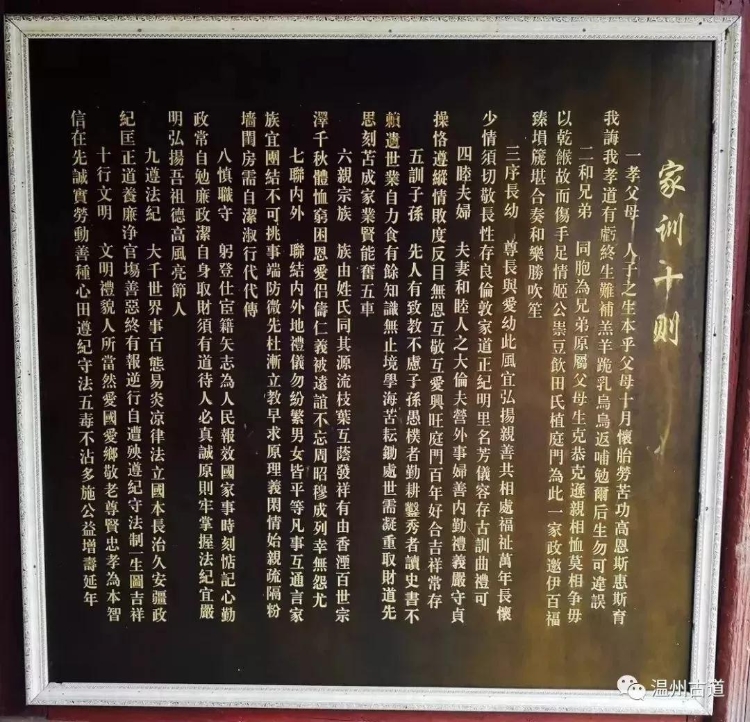 家训十则
一孝父母　人子之生本乎父母十月懷胎勞苦功高恩斯惠斯育
我誨我孝道有虧終生難補羔羊跪乳烏烏返哺勉爾后生勿可違誤
二和兄弟　同胞為兄弟原屬父母生克恭克遜親相恤莫相争毋
以乾餱故而傷手足情姬公祟豆飲田氏植庭門為此一家政邀伊百福
臻埙篪堪合奏和樂勝吹笙
三序長幼　尊長與愛幼此風宜弘揚親善共相處福祉萬年長懷
少情須切敬長性存良倫敦家道正紀明里名芳儀容存古訓曲禮可
四睦夫婦　夫妻和睦人之大倫夫營外事婦善内勤禮義嚴守貞
操恪遵縱情敗度反目無恩互敬互愛興旺庭門百年好合吉祥常存
五訓子孫　先人有致教不慮子孫愚樸者勤耕鑿秀者讀史書不
賴遺世業自力食有餘知識無止境學海苦耘鋤處世需凝重取財道先
思刻苦成家業賢能奮五車
六親宗族　族由姓氏同其源流枝葉互蔭發祥有由香湮百世宗
澤千秋體恤窮困恩愛侣儔仁義被遠誼不忘周昭穆成列幸無怨尤
七聯内外　聯結内外地禮儀勿紛繁男女皆平等凡事互通言家
族宜團結不可挑事端防微先杜漸立教早求原理義閑情始親疏隔粉
墙閨房需自潔淑行代代傳
八慎職守　躬登仕宦籍矢志為人民報效國家事時刻惦記心勤
政常自勉廉政潔自身取財須有道待人必真誠原則牢掌握法紀宜嚴
明弘揚吾祖德高風亮節人
九遵法紀　大千世界事百態易炎凉律法立國本長治久安疆政
紀匡正道養廉净官場善惡終有報逆行自遭殃遵紀守法制一生圖吉祥
十行文明　文明禮貌人所當然愛國愛鄉敬老尊賢忠孝為本智
信在先誠實勞動善種心田遵紀守法五毒不沾多施公益增壽延年
温州古道